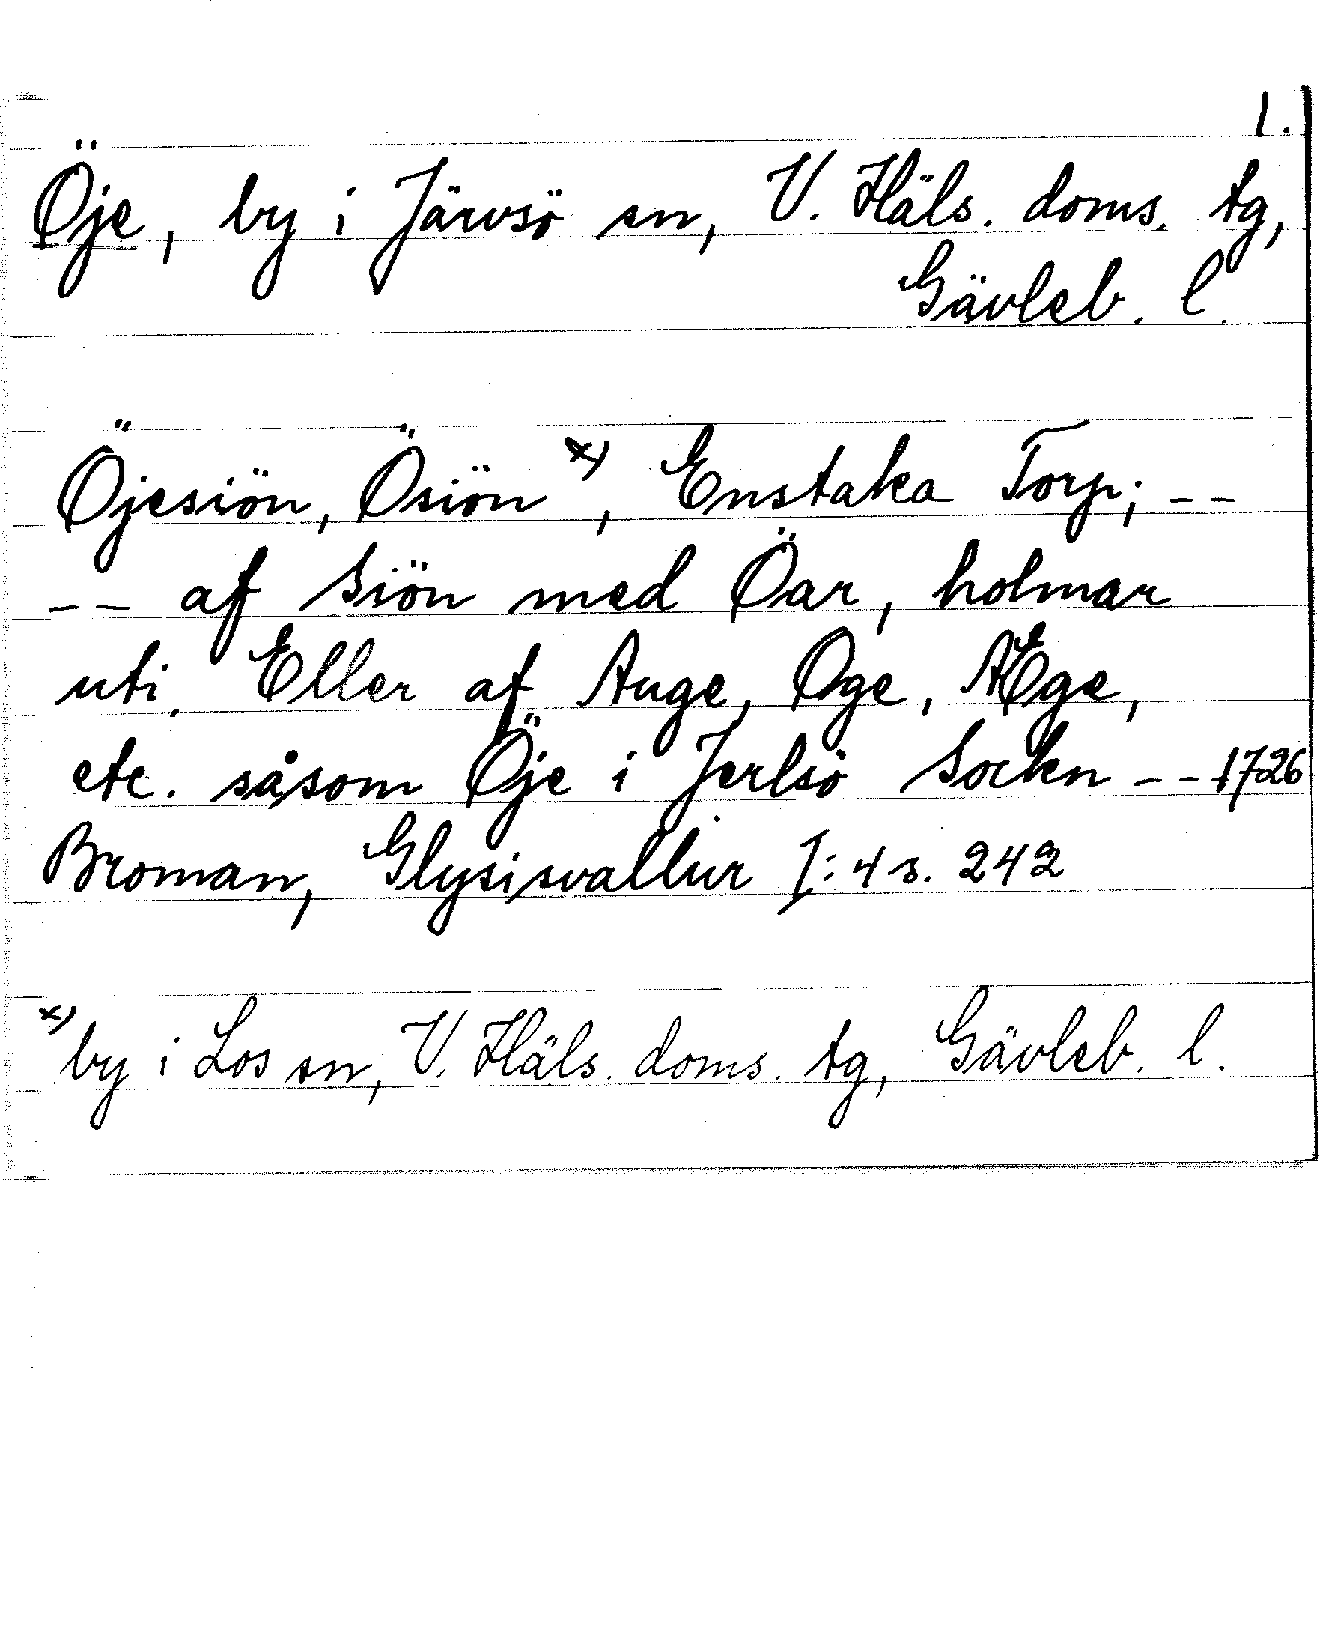 1.
Öje, by i Järvsö sn, V. Häls. doms. tg,
Gävleb. l.
Öjesiön, Ösiön x), Enstaka Torp; --
-- af Siön med Öar, holmar
uti. Eller af Auge, Oge, Æge,
etc. såsom Öje i Jerlsö Sockn -- 1726
Broman, Glysisvallur I: 4 s. 242
x) by i Los sn, V. Häls. doms. tg, Gävleb. l.